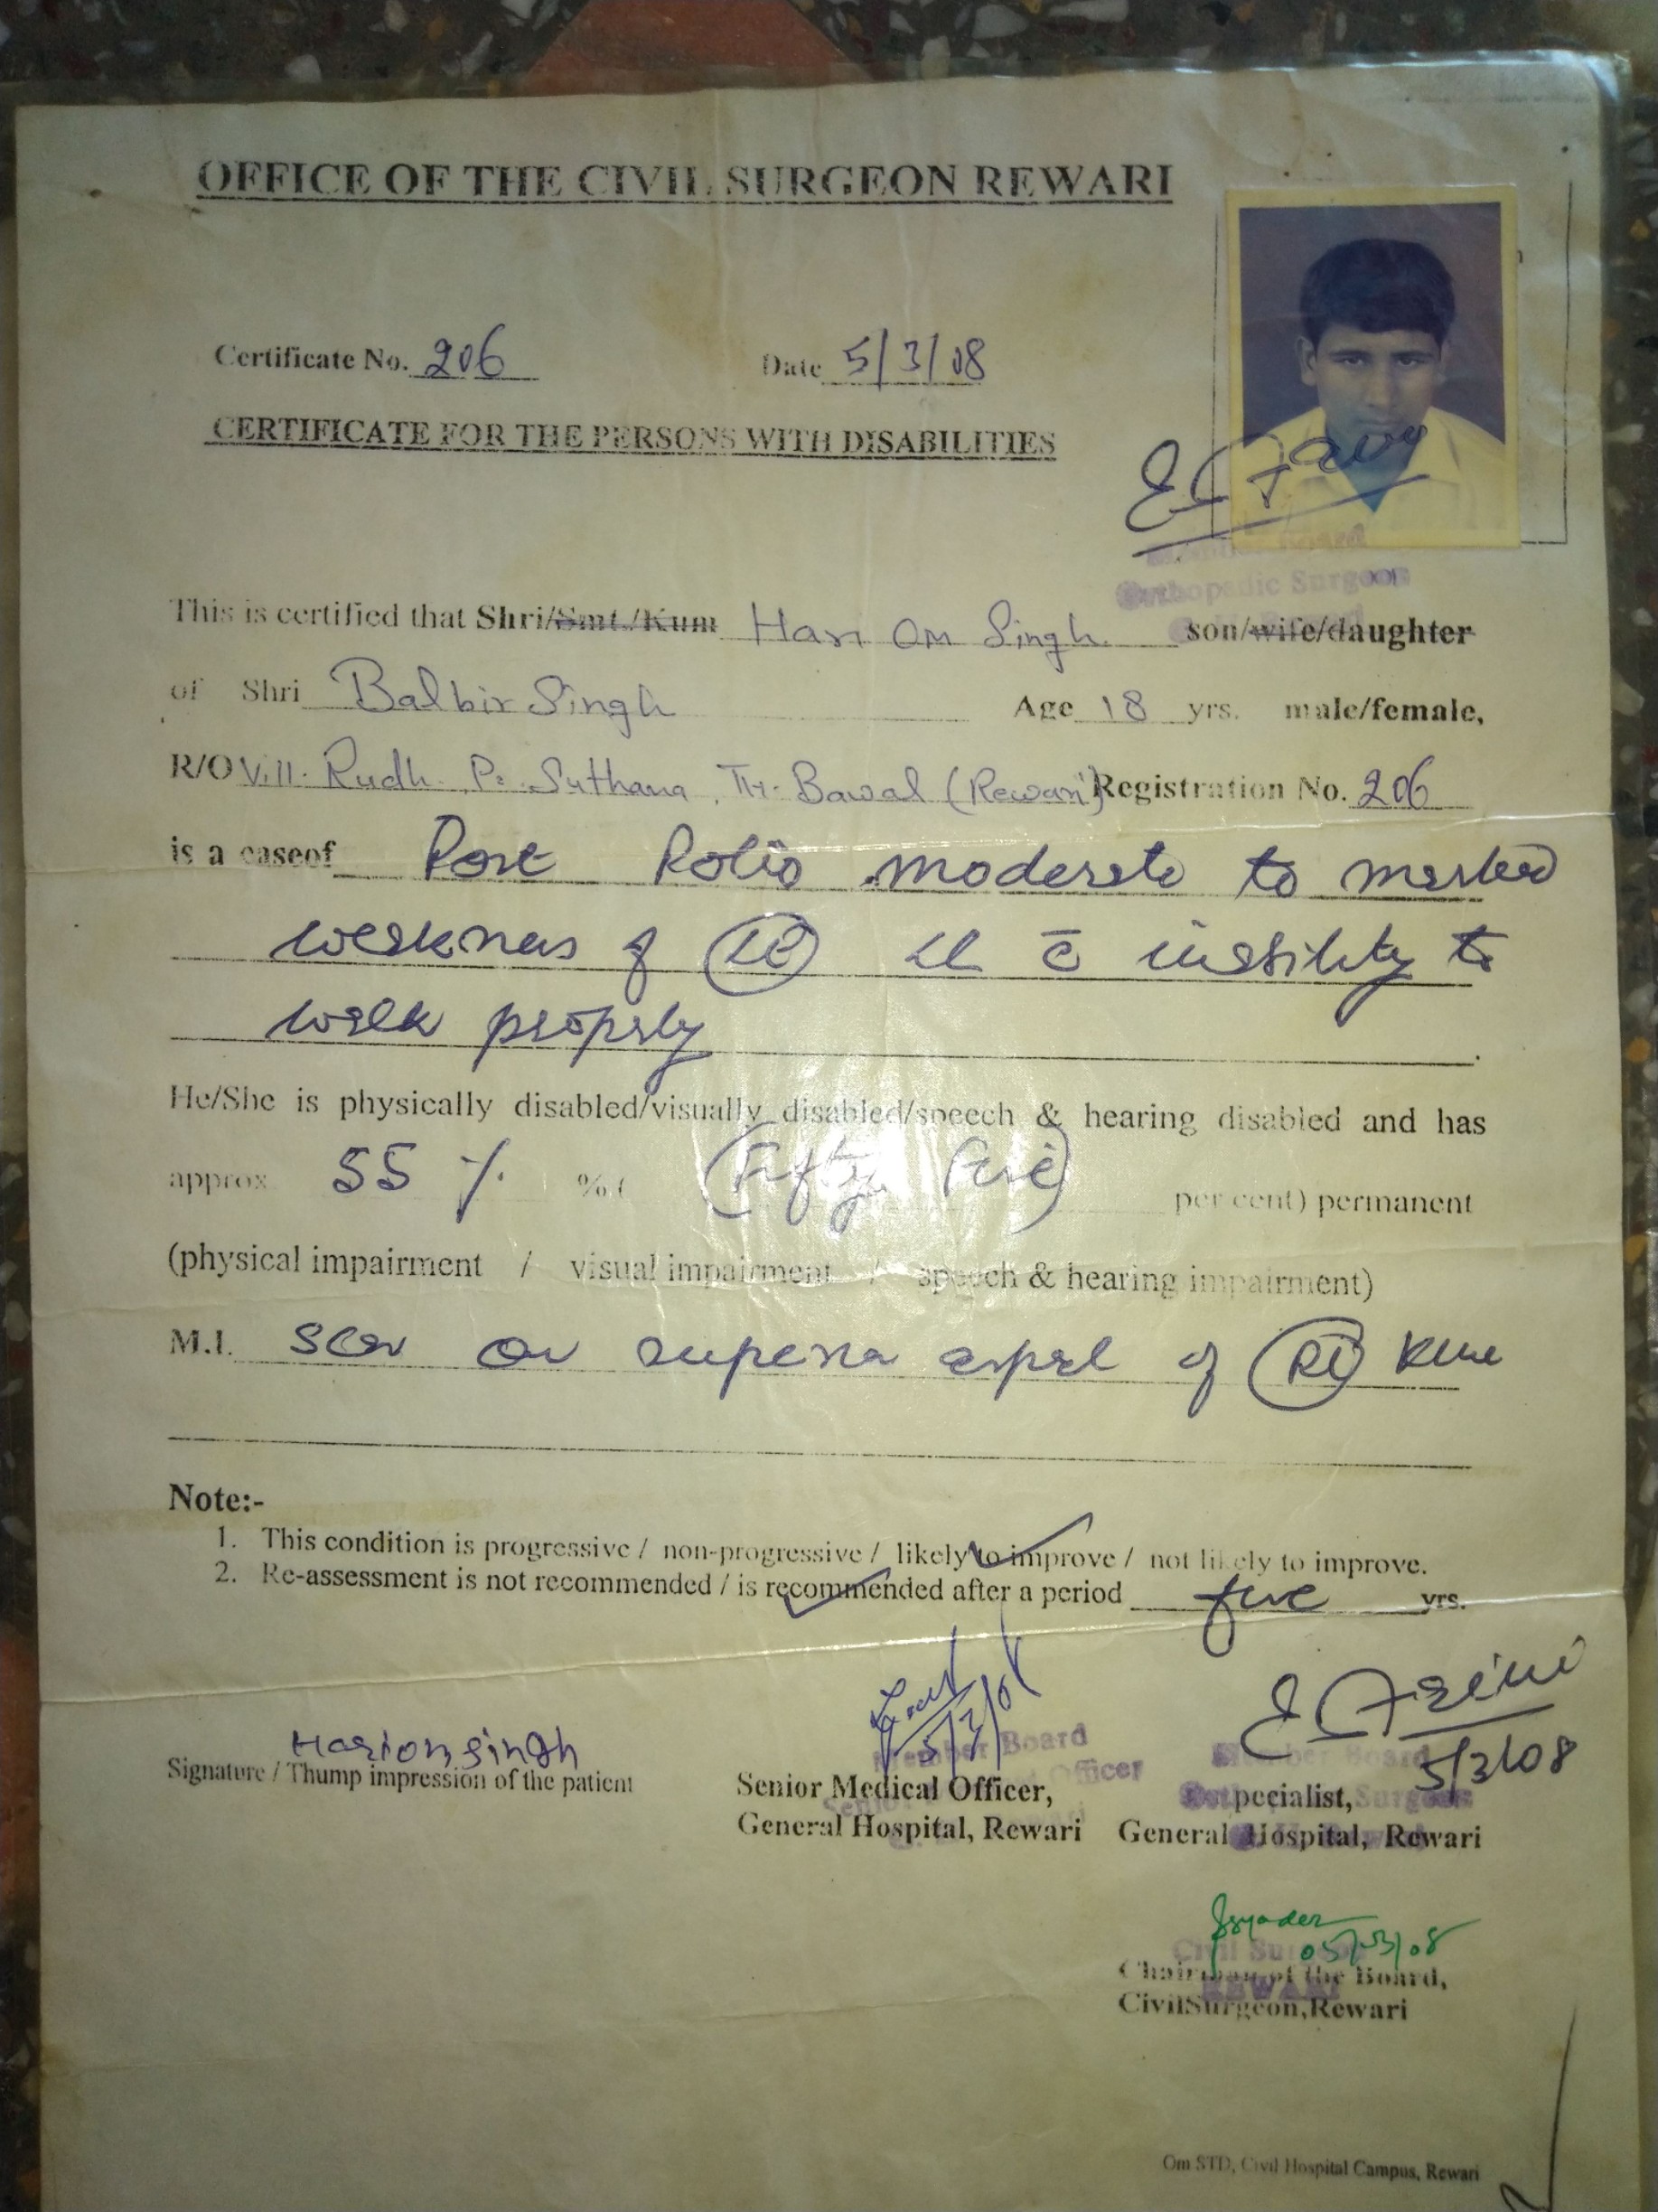 OFFICE OF THE CIVIL SURGEON REWARI
Certificate No. 206 Date 5/3/08
CERTIFICATE FOR THE PERSONS WITH DISABILITIES
Orthopadic Surgeon
This is certified that Shri/Smt./Kum Hari Om Singh son/wife/daughter
of Shri Balbir Singh Age 18 yrs. male/female,
R/O Vill. Rudh P. Suthana, Bawal (Rewari) Registration No. 206
is a caseof Post Polio moderate to marked
weakness of LL c̄ inability to
walk properly
He/She is physically disabled/visually disabled/speech & hearing disabled and has
approx 55 % % ( (Fifty Five) per cent) permanent
(physical impairment / visual impairment / speech & hearing impairment)
M.I. Scar on superior aspect of Rt Knee
Note:-
1. This condition is progressive / non-progressive / likely to improve / not likely to improve.
2. Re-assessment is not recommended / is recommended after a period five yrs.
5/3/08
Hariom singh
Signature / Thump impression of the patient
Member Board
Officer
Senior Medical Officer,
General Hospital, Rewari
5/3/08
Member Board
Surgeon
pecialist,
General Hospital, Rewari
05/03/08
Civil Surgeon
REWARI
Chairman of the Board,
CivilSurgeon,Rewari
Om STD, Civil Hospital Campus, Rewari